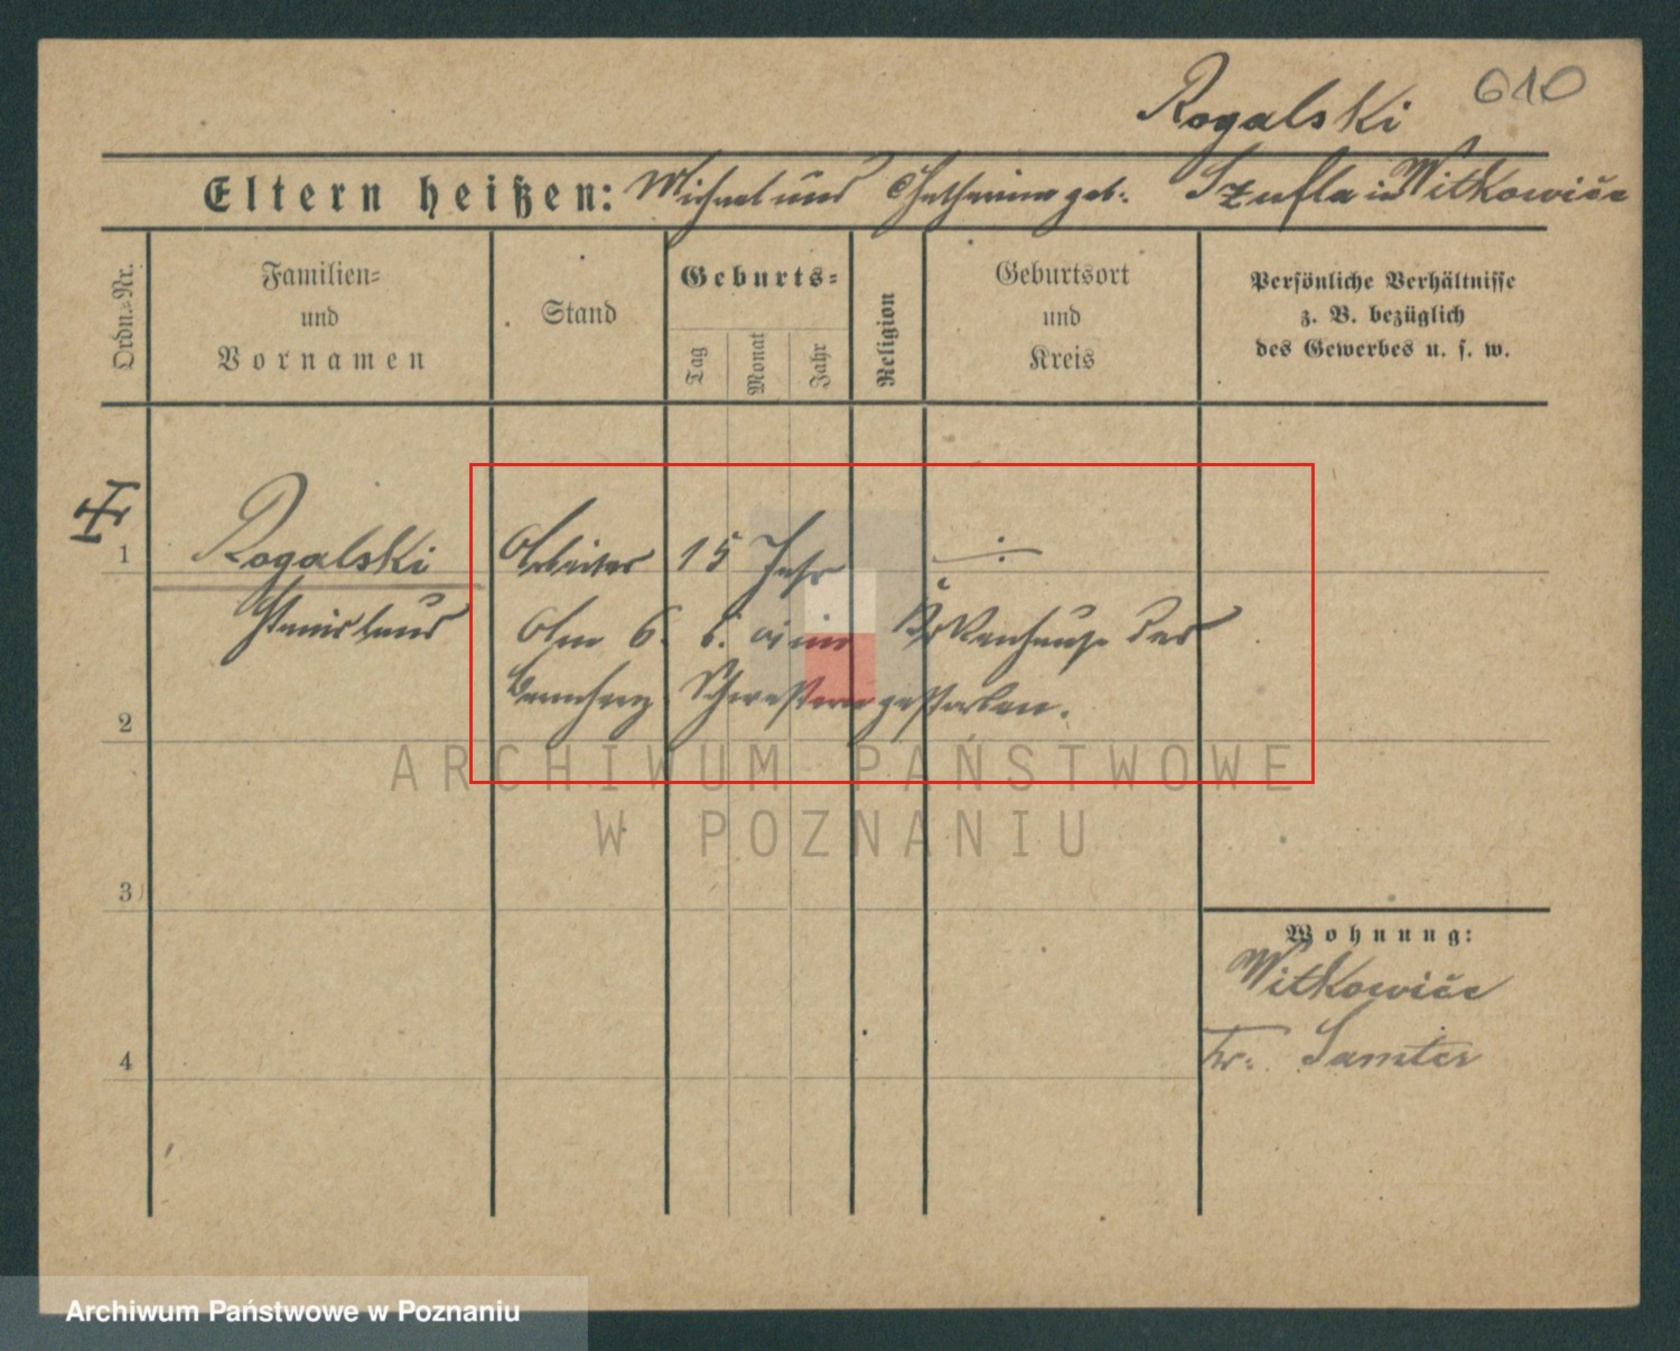 Rogalski 610
Eltern heißen: Michael und Catharina geb. Szufla in Witkowice
Ordn.-Nr.
Familien-
und
Vornamen
Stand
Geburts-
Tag
Monat
Jahr
Religion
Geburtsort
und
Kreis
Persönliche Verhältnisse
z. B. bezüglich
des Gewerbes u. s. w.
1
Rogalski
Stanislaus
Arbeiter 15 Jahr ÷
Am 6. 6. im Krkenhause der
barmherz. Schwestern gestorben.
2
ARCHIWUM PAŃSTWOWE
W POZNANIU
3
Wohnung:
Witkowice
Kr. Samter
4
Archiwum Państwowe w Poznaniu